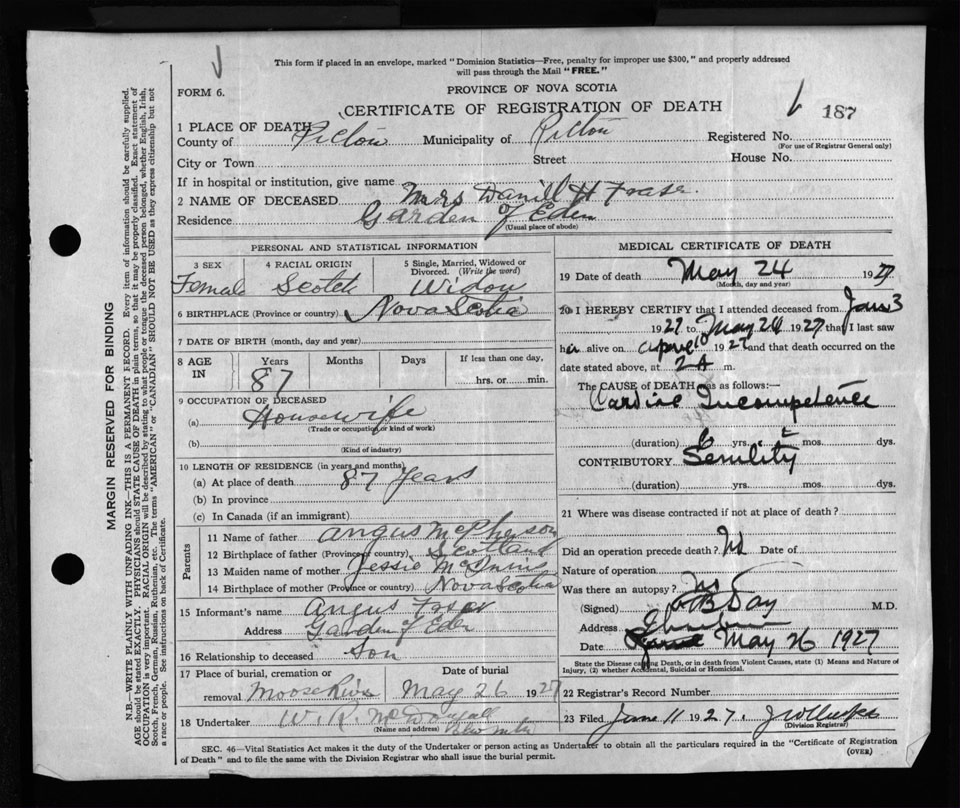 This form if placed in an envelope, marked "Dominion Statistics—Free, penalty for improper use $300," and properly addressed
will pass through the Mail "FREE."
FORM 6.
PROVINCE OF NOVA SCOTIA
CERTIFICATE OF REGISTRATION OF DEATH
187
1 PLACE OF DEATH
County of Pictou Municipality of Pictou Registered No.
(For use of Registrar General only)
City or Town Street House No.
If in hospital or institution, give name
2 NAME OF DECEASED Mrs Daniel H Fraser
Residence Garden of Eden
(Usual place of abode)
PERSONAL AND STATISTICAL INFORMATION
3 SEX 4 RACIAL ORIGIN 5 Single, Married, Widowed or Divorced. (Write the word)
Female Scotch Widow
6 BIRTHPLACE (Province or country) Nova Scotia
7 DATE OF BIRTH (month, day and year)
8 AGE IN Years Months Days If less than one day,
87 hrs. or min.
9 OCCUPATION OF DECEASED
(a) Housewife
(Trade or occupation or kind of work)
(b)
(Kind of industry)
10 LENGTH OF RESIDENCE (in years and months)
(a) At place of death 87 years
(b) In province
(c) In Canada (if an immigrant)
Parents
11 Name of father Angus McPherson
12 Birthplace of father (Province or country) Scotland
13 Maiden name of mother Jessie McInnis
14 Birthplace of mother (Province or country) Nova Scotia
15 Informant's name Angus Fraser
Address Garden of Eden
16 Relationship to deceased Son
17 Place of burial, cremation or Date of burial
removal Moose River May 26 1927
18 Undertaker W. R. McDonald
(Name and address)
MEDICAL CERTIFICATE OF DEATH
19 Date of death May 24 1927
(Month, day and year)
20 I HEREBY CERTIFY that I attended deceased from Jan 3
1927 to May 24 1927 that I last saw
her alive on April 10 1927 and that death occurred on the
date stated above, at 2 A m.
The CAUSE OF DEATH was as follows:—
Cardiac Incompetence
(duration) yrs. mos. dys.
CONTRIBUTORY Senility
(duration) yrs. mos. dys.
21 Where was disease contracted if not at place of death?
Did an operation precede death? No Date of
Nature of operation
Was there an autopsy? No
(Signed) Day M.D.
Address
Date May 26 1927
State the Disease causing Death, or in death from Violent Causes, state (1) Means and Nature of
Injury, (2) whether Accidental, Suicidal or Homicidal.
22 Registrar's Record Number
23 Filed June 11 1927.
(Division Registrar)
SEC. 46—Vital Statistics Act makes it the duty of the Undertaker or person acting as Undertaker to obtain all the particulars required in the "Certificate of Registration
of Death" and to file the same with the Division Registrar who shall issue the burial permit.
(OVER)
MARGIN RESERVED FOR BINDING
N.B.—WRITE PLAINLY WITH UNFADING INK—THIS IS A PERMANENT RECORD. Every item of information should be carefully supplied.
AGE should be stated EXACTLY. PHYSICIANS should STATE CAUSE OF DEATH in plain terms, so that it may be properly classified. Exact statement of
OCCUPATION is very important. RACIAL ORIGIN will be described by stating to what people or tongue the deceased person belonged, whether English, Irish,
Scotch, French, German, Russian, Ruthenian, etc. The terms "AMERICAN" or "CANADIAN" SHOULD NOT BE USED as they express citizenship but not
a race or people. See instructions on back of Certificate.